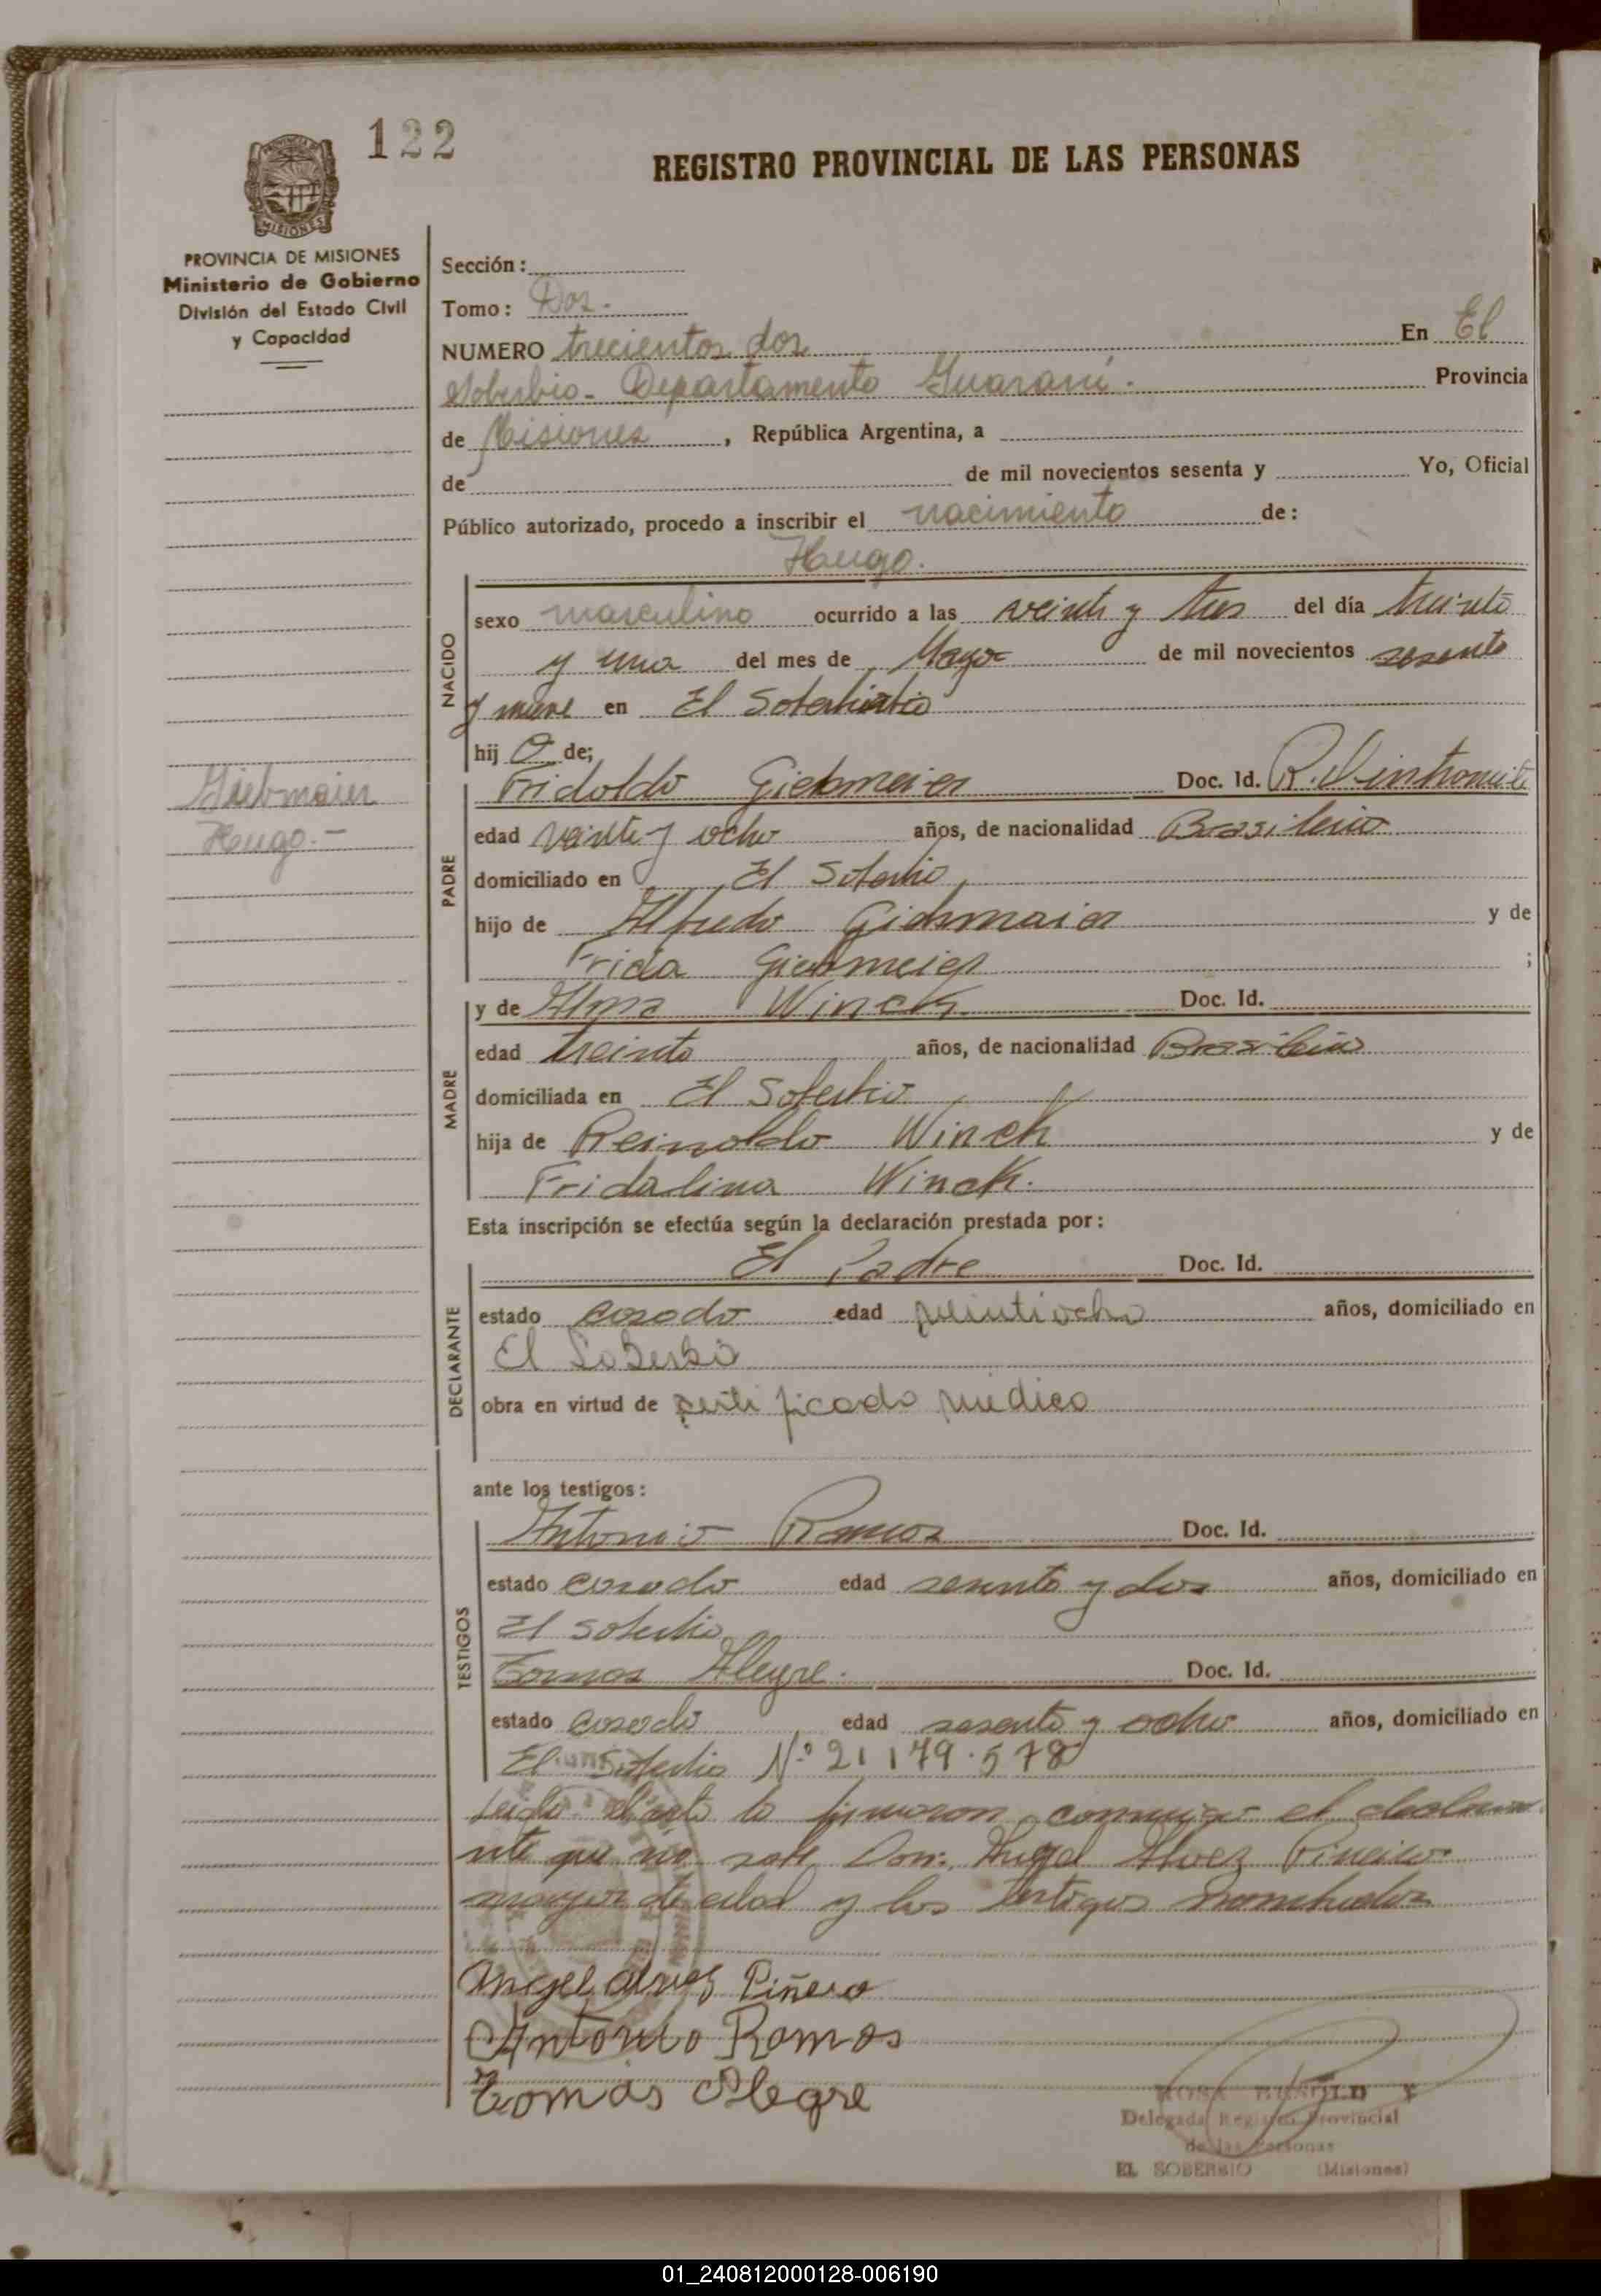 122
REGISTRO PROVINCIAL DE LAS PERSONAS
MISIONES
PROVINCIA DE MISIONES
Ministerio de Gobierno
División del Estado Civil
y Capacidad
Sección:
Tomo: Dos.-
NUMERO trecientos dos En El
Soberbio- Departamento Guaraní.- Provincia
de Misiones, República Argentina, a
de de mil novecientos sesenta y Yo, Oficial
Público autorizado, procedo a inscribir el nacimiento de:
Hugo.
NACIDO
sexo masculino ocurrido a las veinte y tres del día treinta
y uno del mes de Mayo de mil novecientos sesenta
y nueve en El Soberbio
hij o de;
Giebmaier
Hugo.-
PADRE
Fridoldo Giebmeier Doc. Id.
edad veinte y ocho años, de nacionalidad Brasileño
domiciliado en El Soberbio
hijo de Alfredo Giebmaier y de
Frida Giebmeier ;
MADRE
y de Alma Winck Doc. Id.
edad treinta años, de nacionalidad Brasileña
domiciliada en El Soberbio
hija de Reinoldo Winck y de
Fridalina Winck.
Esta inscripción se efectúa según la declaración prestada por:
DECLARANTE
El Padre Doc. Id.
estado casado edad veintiocho años, domiciliado en
El Soberbio
obra en virtud de certificado médico
ante los testigos:
TESTIGOS
Antonio Ramos Doc. Id.
estado casado edad sesenta y dos años, domiciliado en
El Soberbio
Tomas Alegre. Doc. Id.
estado casado edad sesenta y ocho años, domiciliado en
El Soberbio Nº 21.179.578
Leída el acta la firmaron conmigo el declara
nte que no sabe Don: Angel Alvez Pineiro
mayor de edad y los testigos nombrados
Angel alvez Piñero
Antonio Ramos
Tomás Alegre
ROSA
Delegada Registro Provincial
de las Personas
EL SOBERBIO (Misiones)
01_240812000128-006190